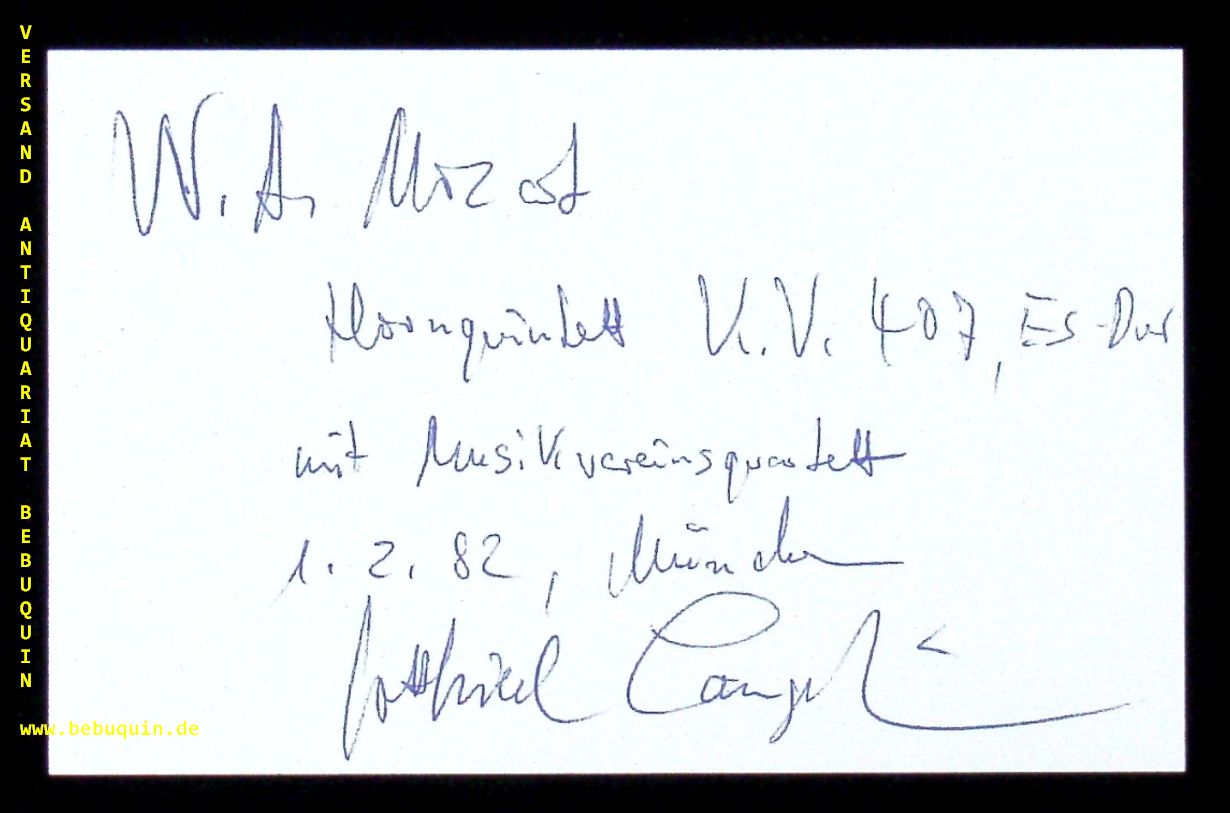 VERSAND ANTIQUARIAT BEBUQUIN
W. A. Mozart
Hornquintett K.V. 407, Es-Dur
mit Musikvereinsquartett
1. 2. 82, München
Gottfried
www.bebuquin.de